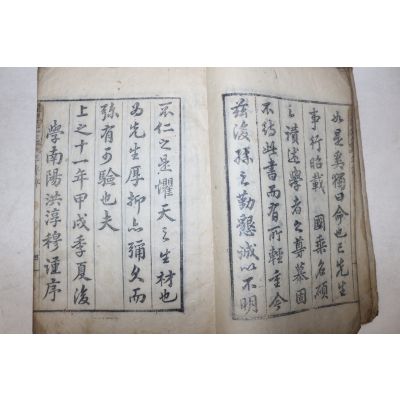 如是焉獨曰今也已先生
事行昭載 國乘名碩
之讚述學者之尊慕固
不待此書而有所輕重今
玆後孫之勤懇誠以不明
不仁之是懼天之生材也
爲先生厚抑亦彌久而
弥有可驗也夫
上之十一年甲戌季夏後
學南陽洪淳穆謹序